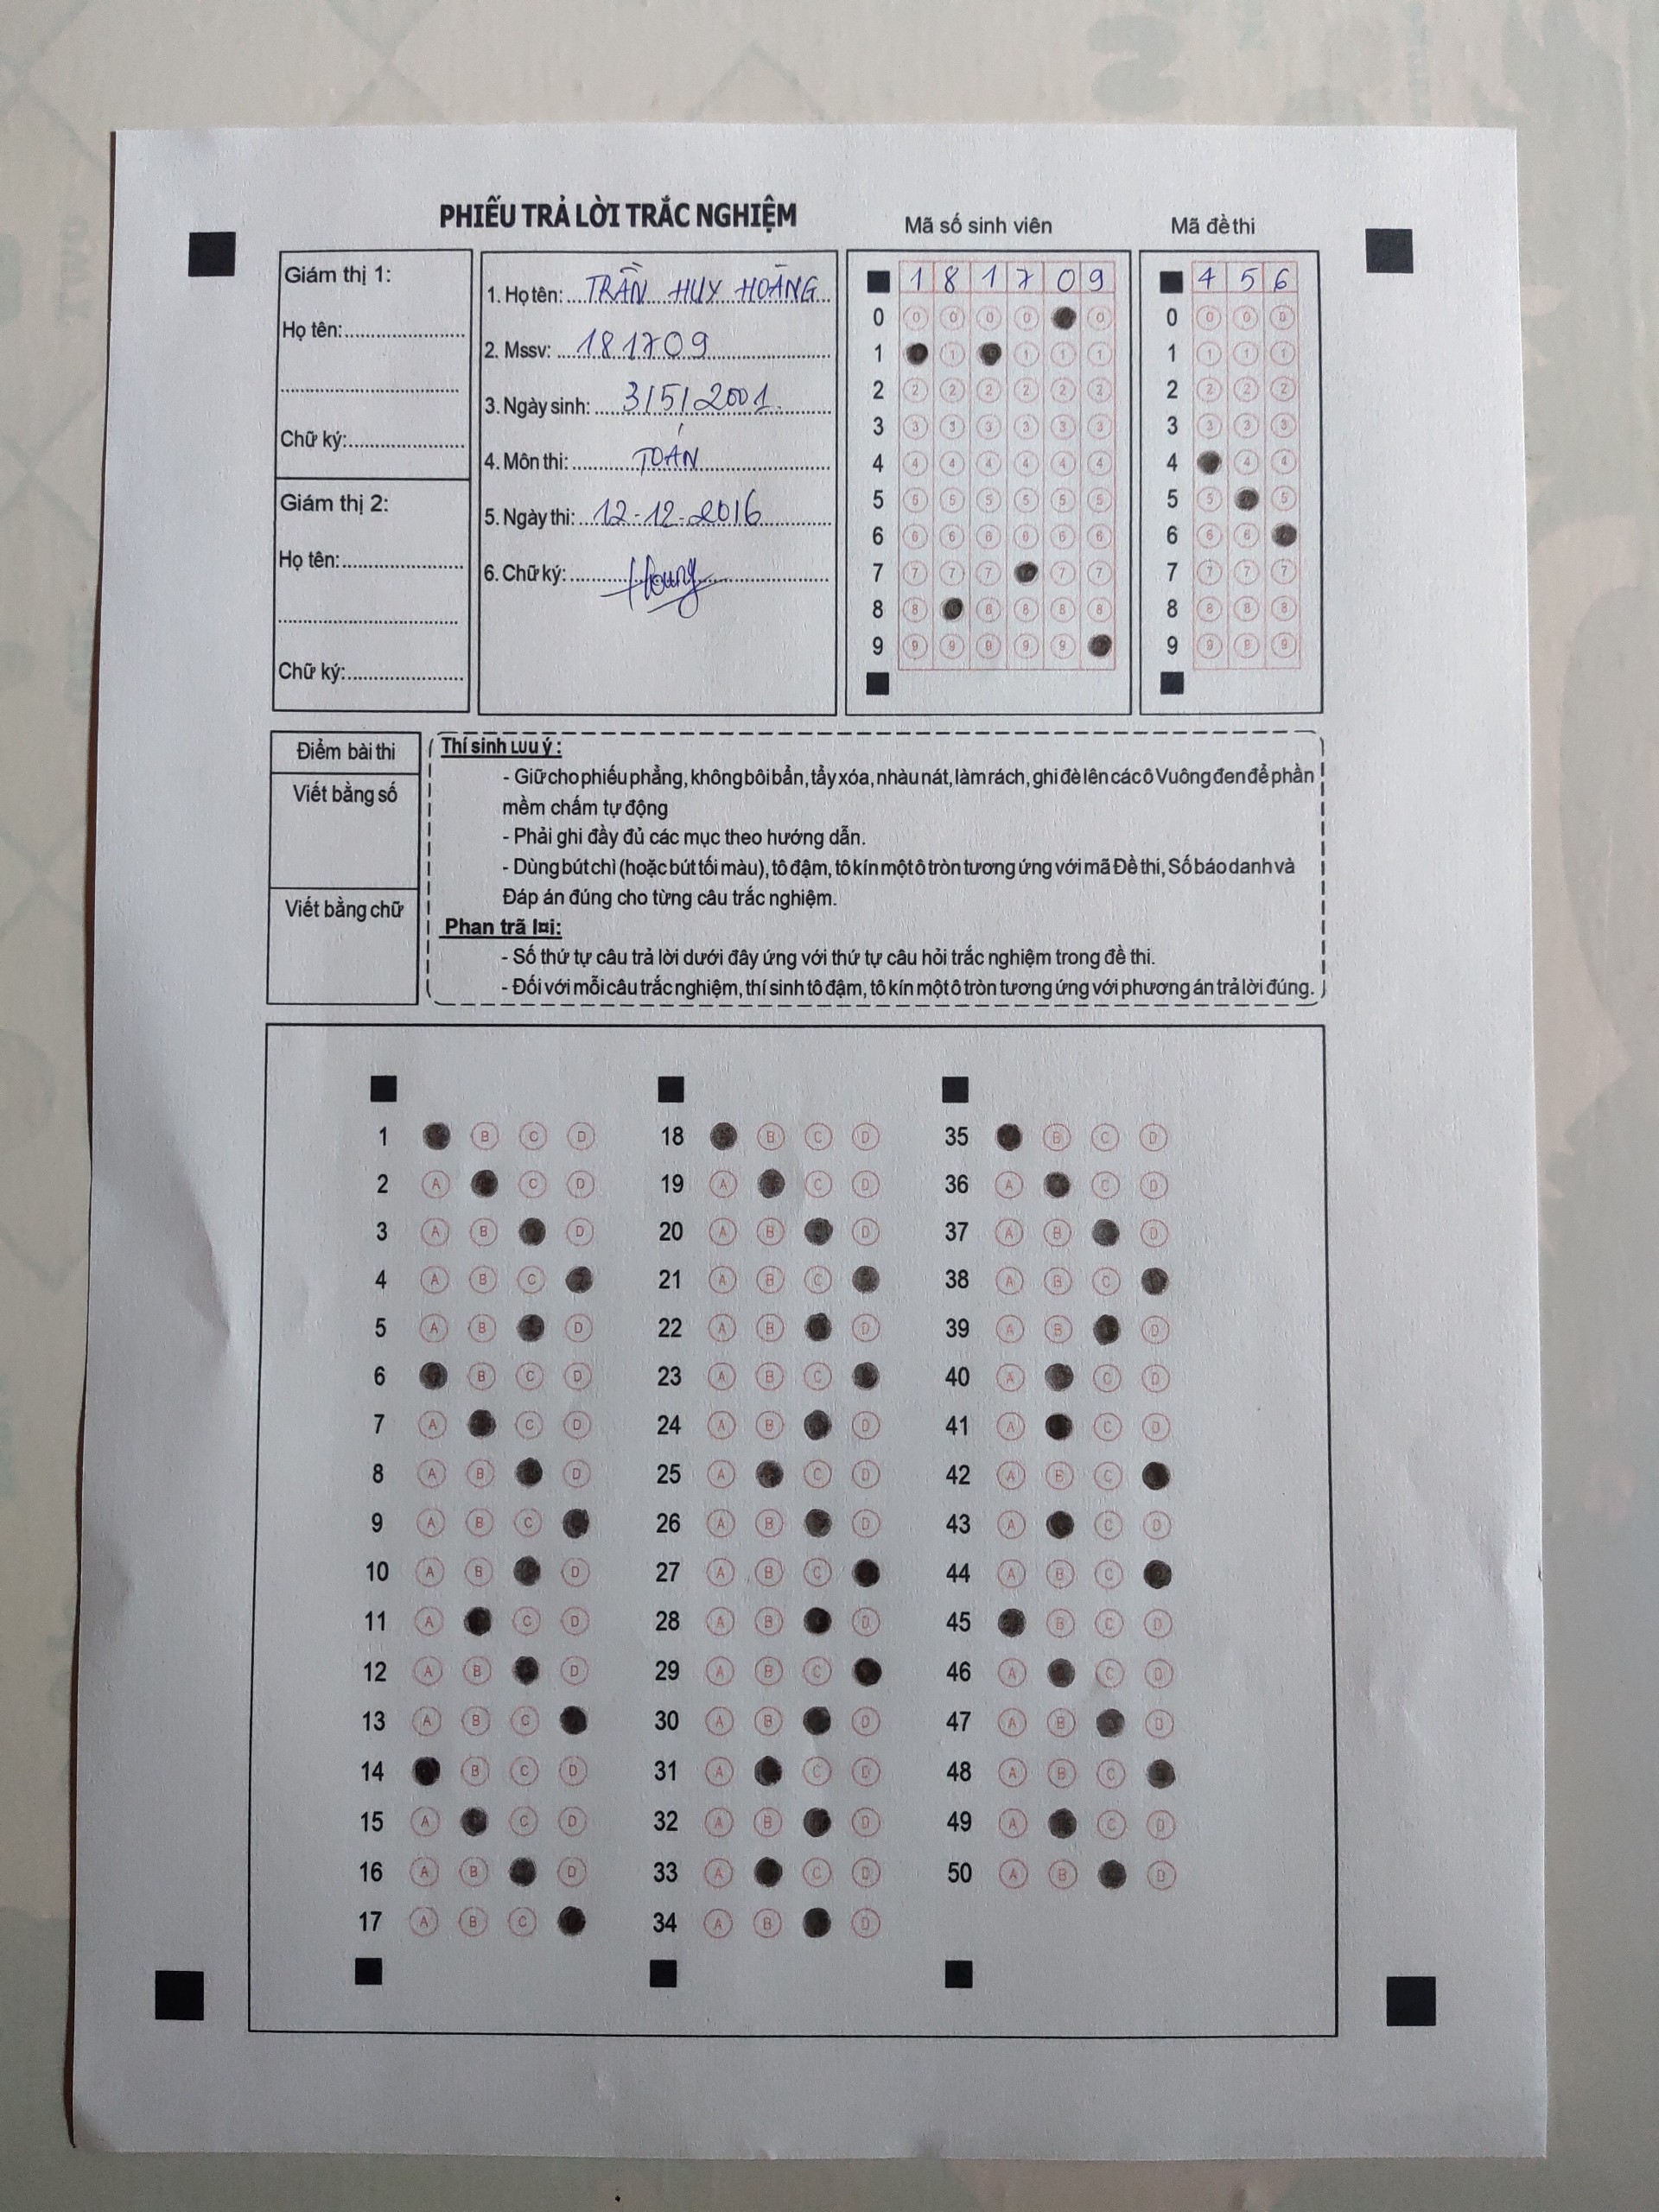 PHIẾU TRẢ LỜI TRẮC NGHIỆM
Mã số sinh viên
Mã đề thi
Giám thị 1:
Họ tên:
Chữ ký:
Giám thị 2:
Họ tên:
Chữ ký:
1. Họ tên: TRẦN HUY HOÀNG
2. Mssv: 181709
3. Ngày sinh: 3/5/2001.
4. Môn thi: TOÁN
5. Ngày thi: 12-12-2016
6. Chữ ký:
1 8 1 7 0 9
0 0 0 0 0 0
1 1 1 1 1
2 2 2 2 2 2 2
3 3 3 3 3 3 3
4 4 4 4 4 4 4
5 5 5 5 5 5 5
6 6 6 6 6 6 6
7 7 7 7 7 7
8 8 8 8 8 8
9 9 9 9 9 9
4 5 6
0 0 0 0
1 1 1 1
2 2 2 2
3 3 3 3
4 4 4
5 5 5
6 6 6
7 7 7 7
8 8 8 8
9 9 9 9
Điểm bài thi
Viết bằng số
Viết bằng chữ
Thí sinh Lưu ý :
- Giữ cho phiếu phẳng, không bôi bẩn, tẩy xóa, nhàu nát, làm rách, ghi đè lên các ô Vuông đen để phần
mềm chấm tự động
- Phải ghi đầy đủ các mục theo hướng dẫn.
- Dùng bút chì (hoặc bút tối màu), tô đậm, tô kín một ô tròn tương ứng với mã Đề thi, Số báo danh và
Đáp án đúng cho từng câu trắc nghiệm.
Phan trã l¤i:
- Số thứ tự câu trả lời dưới đây ứng với thứ tự câu hỏi trắc nghiệm trong đề thi.
- Đối với mỗi câu trắc nghiệm, thí sinh tô đậm, tô kín một ô tròn tương ứng với phương án trả lời đúng.
1 B C D
2 A C D
3 A B D
4 A B C
5 A B D
6 B C D
7 A C D
8 A B D
9 A B C
10 A B D
11 A C D
12 A B D
13 A B C
14 B C D
15 A C D
16 A B D
17 A B C
18 B C D
19 A C D
20 A B D
21 A B C
22 A B D
23 A B C
24 A B D
25 A C D
26 A B D
27 A B C
28 A B D
29 A B C
30 A B D
31 A C D
32 A B D
33 A C D
34 A B D
35 B C D
36 A C D
37 A B D
38 A B C
39 A B D
40 A C D
41 A C D
42 A B C
43 A C D
44 A B C
45 B C D
46 A C D
47 A B D
48 A B C
49 A C D
50 A B D